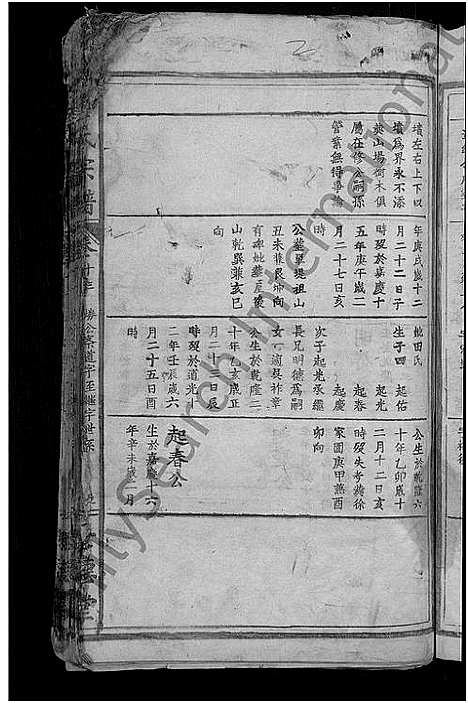 墳左右上下以
墳為界永不添
葬山塲樹木俱
屬在修公嗣孫
管業無得爭論
年庚戌歲十二
月二十二日子
時歿於嘉慶十
五年庚午歲二
月二十七日亥
時
公葬畢堤祖山
丑未兼艮坤向
有碑妣葬屋後
山乾巽兼亥巳
向
妣田氏
生子四
起佑
起光
起春
起慶
次子起光承繼
長兄明德為嗣
女一適吳祚章
公生於乾隆二
十年乙亥歲正
月二十一日辰
時歿於道光十
二年壬辰歲六
月二十五日酉
公生於乾隆六
十年乙卯歲十
二月十二日亥
時歿失考葬徐
家園庚甲兼酉
卯向
起春公
生於嘉慶十六
年辛未歲一月
氏宗譜
卷十三
堂
MySearch International